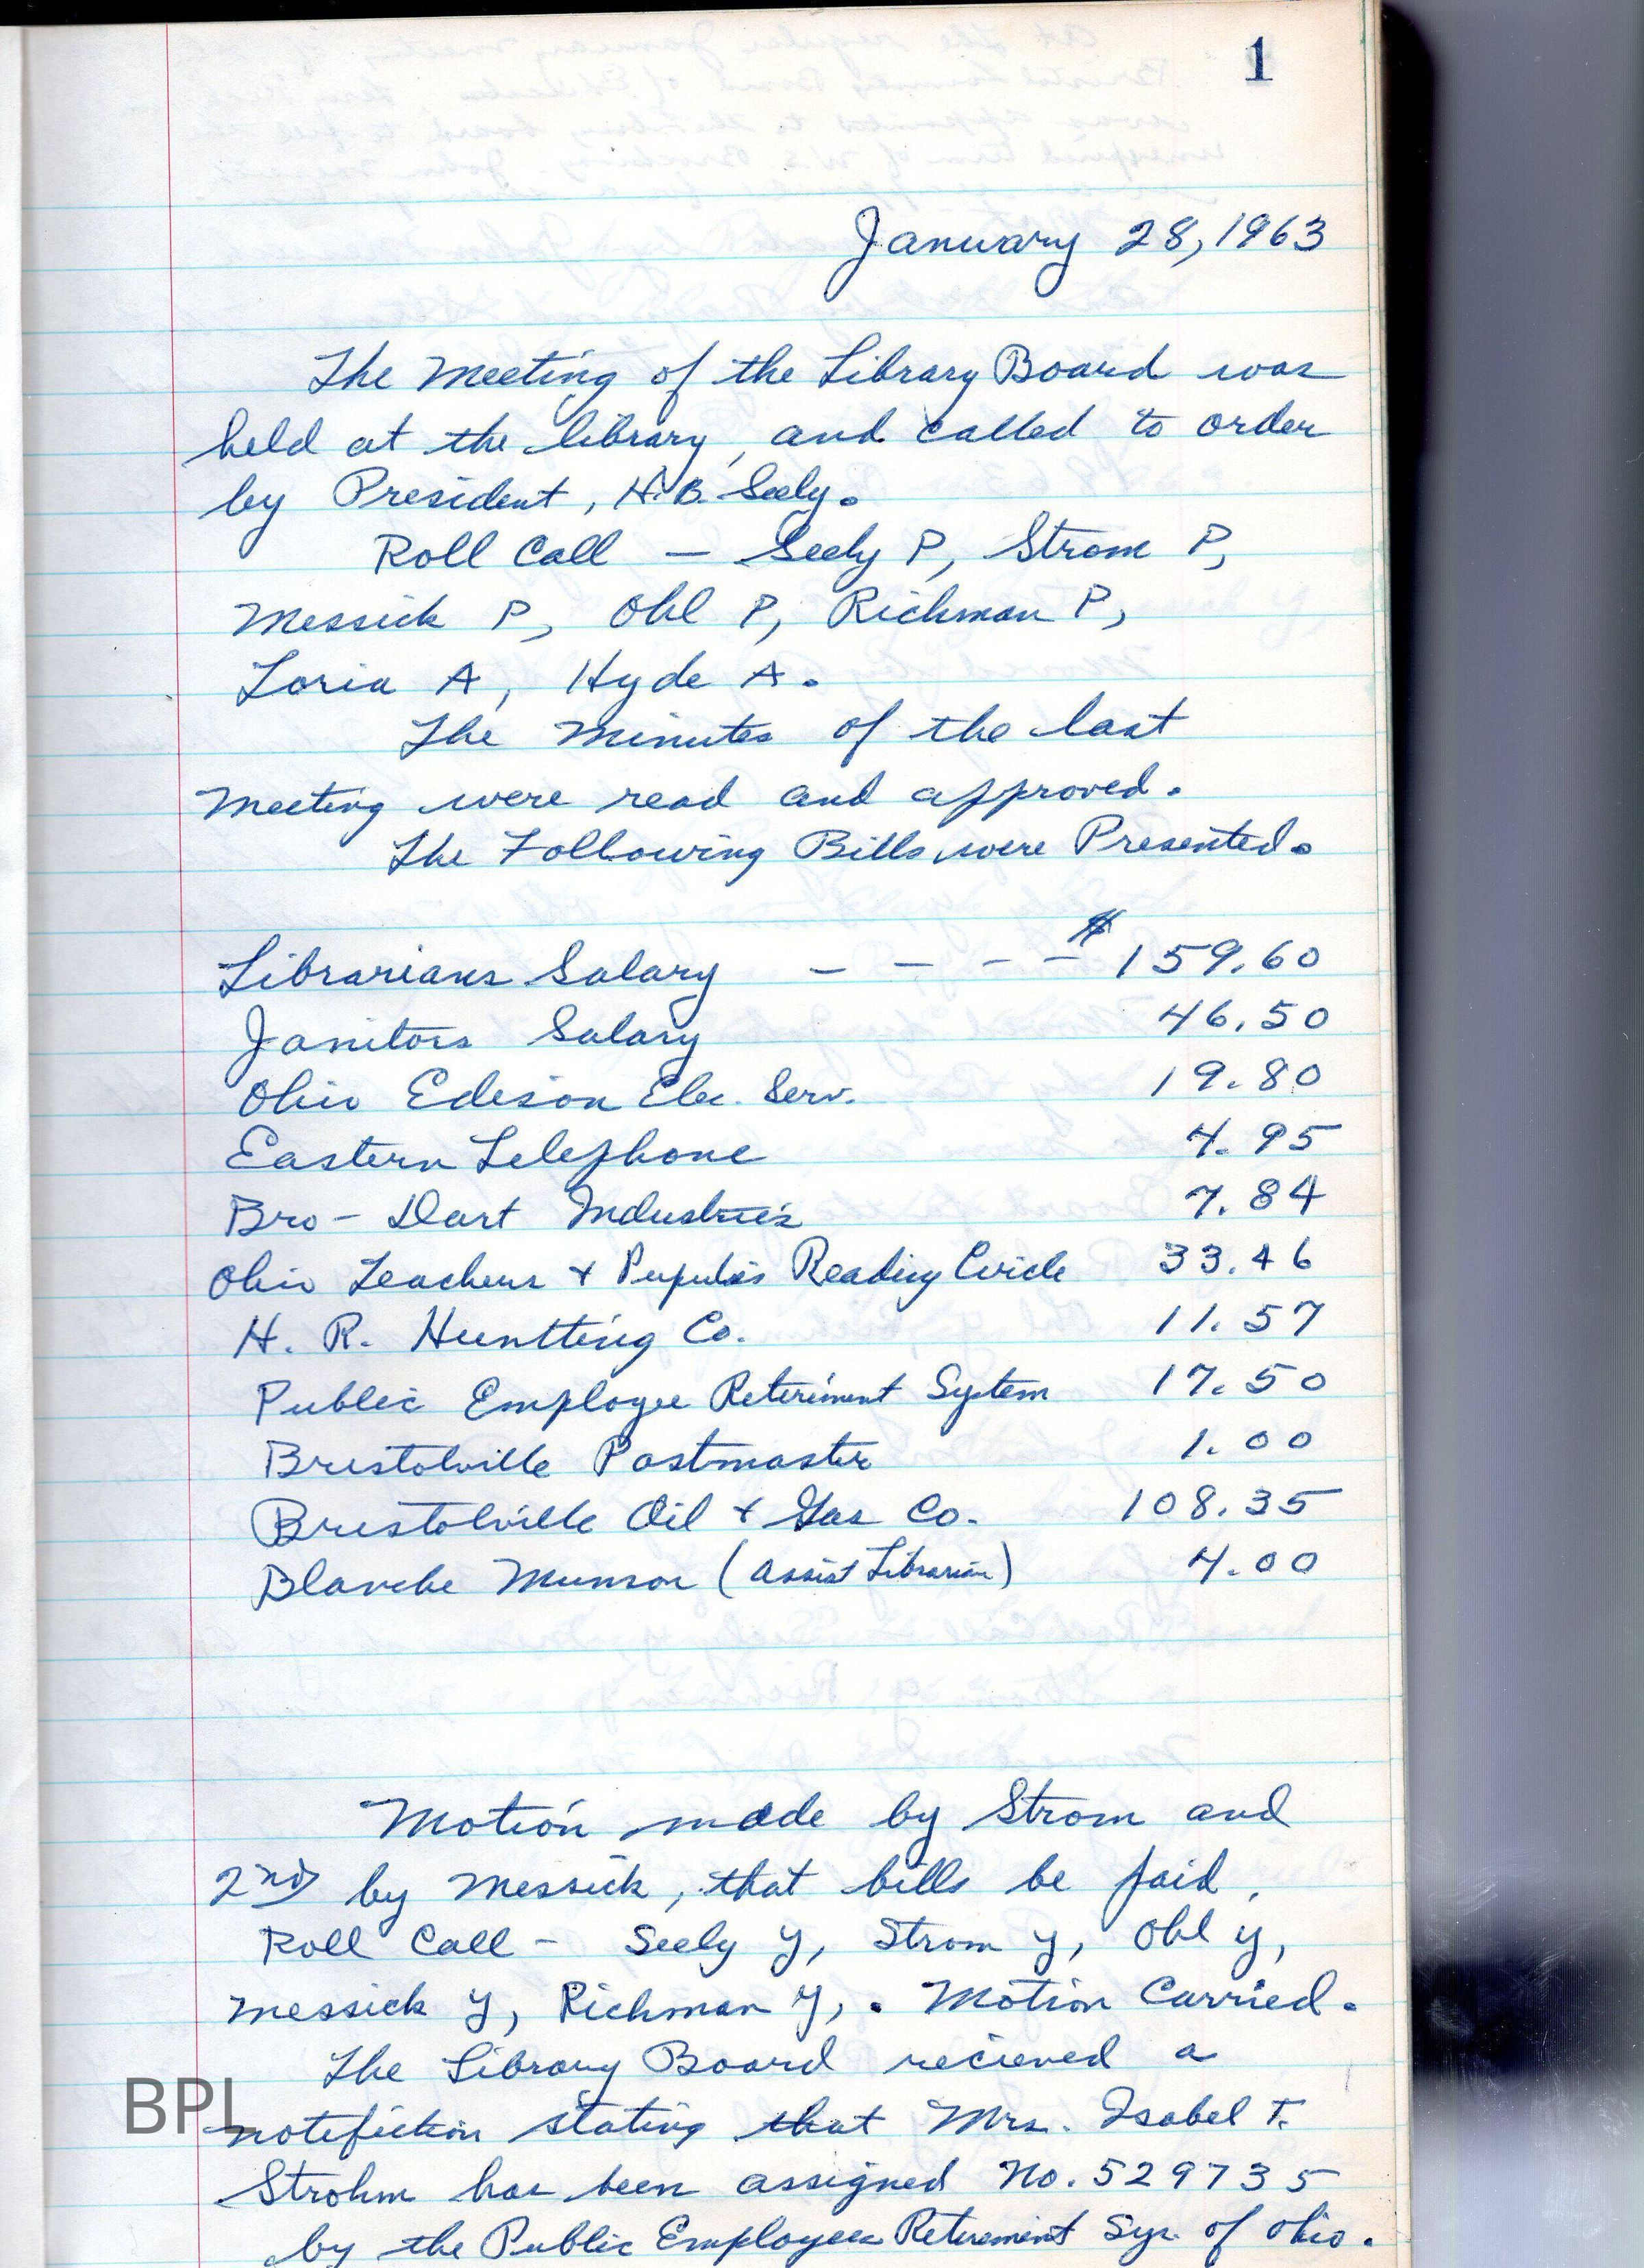 1
January 28, 1963
The Meeting of the Library Board was
held at the library, and called to order
by President, H.B. Seely.
Roll Call — Seely P, Strom P,
Messick P, Ohl P, Richman P,
Loria A, Hyde A.
The Minutes of the last
Meeting were read and approved.
The Following Bills were Presented.
Librarians Salary - - - - $159.60
Janitors Salary 46.50
Ohio Edison Elec. Serv. 19.80
Eastern Telephone 4.95
Bro-Dart Industries 7.84
Ohio Teachers + Pupils Reading Circle 33.46
H. R. Huntting Co. 11.57
Public Employee Reteriment System 17.50
Bristolville Postmaster 1.00
Bristolville Oil + Gas Co. 108.35
Blanche Munson (Assist Librarian) 4.00
Motion made by Strom and
2nd by Messick, that bills be paid,
Roll Call - Seely y, Strom y, Ohl y,
Messick y, Richman y, . Motion Carried.
The Library Board recieved a
notefiction stating that Mrs. Isabel T.
Strohm has been assigned No. 529735
by the Public Employees Reterement Sys. of Ohio.
BPL